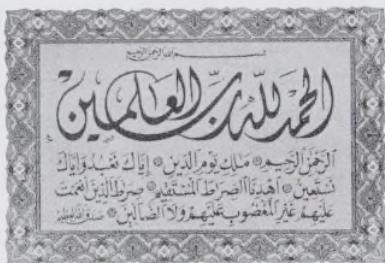 بسم الله الرحمن الرحيم
الحمد لله رب العالمين
الرَّحْمٰنِ الرَّحِيْمِ ۞ مٰلِكِ يَوْمِ الدِّيْنِ ۞ اِيَّاكَ نَعْبُدُ وَاِيَّاكَ
نَسْتَعِيْنُ ۞ اِهْدِنَا الصِّرَاطَ الْمُسْتَقِيْمَ ۞ صِرَاطَ الَّذِيْنَ اَنْعَمْتَ
عَلَيْهِمْ غَيْرِ الْمَغْضُوْبِ عَلَيْهِمْ وَلَا الضَّالِّيْنَ ۞ صدق الله العظيم